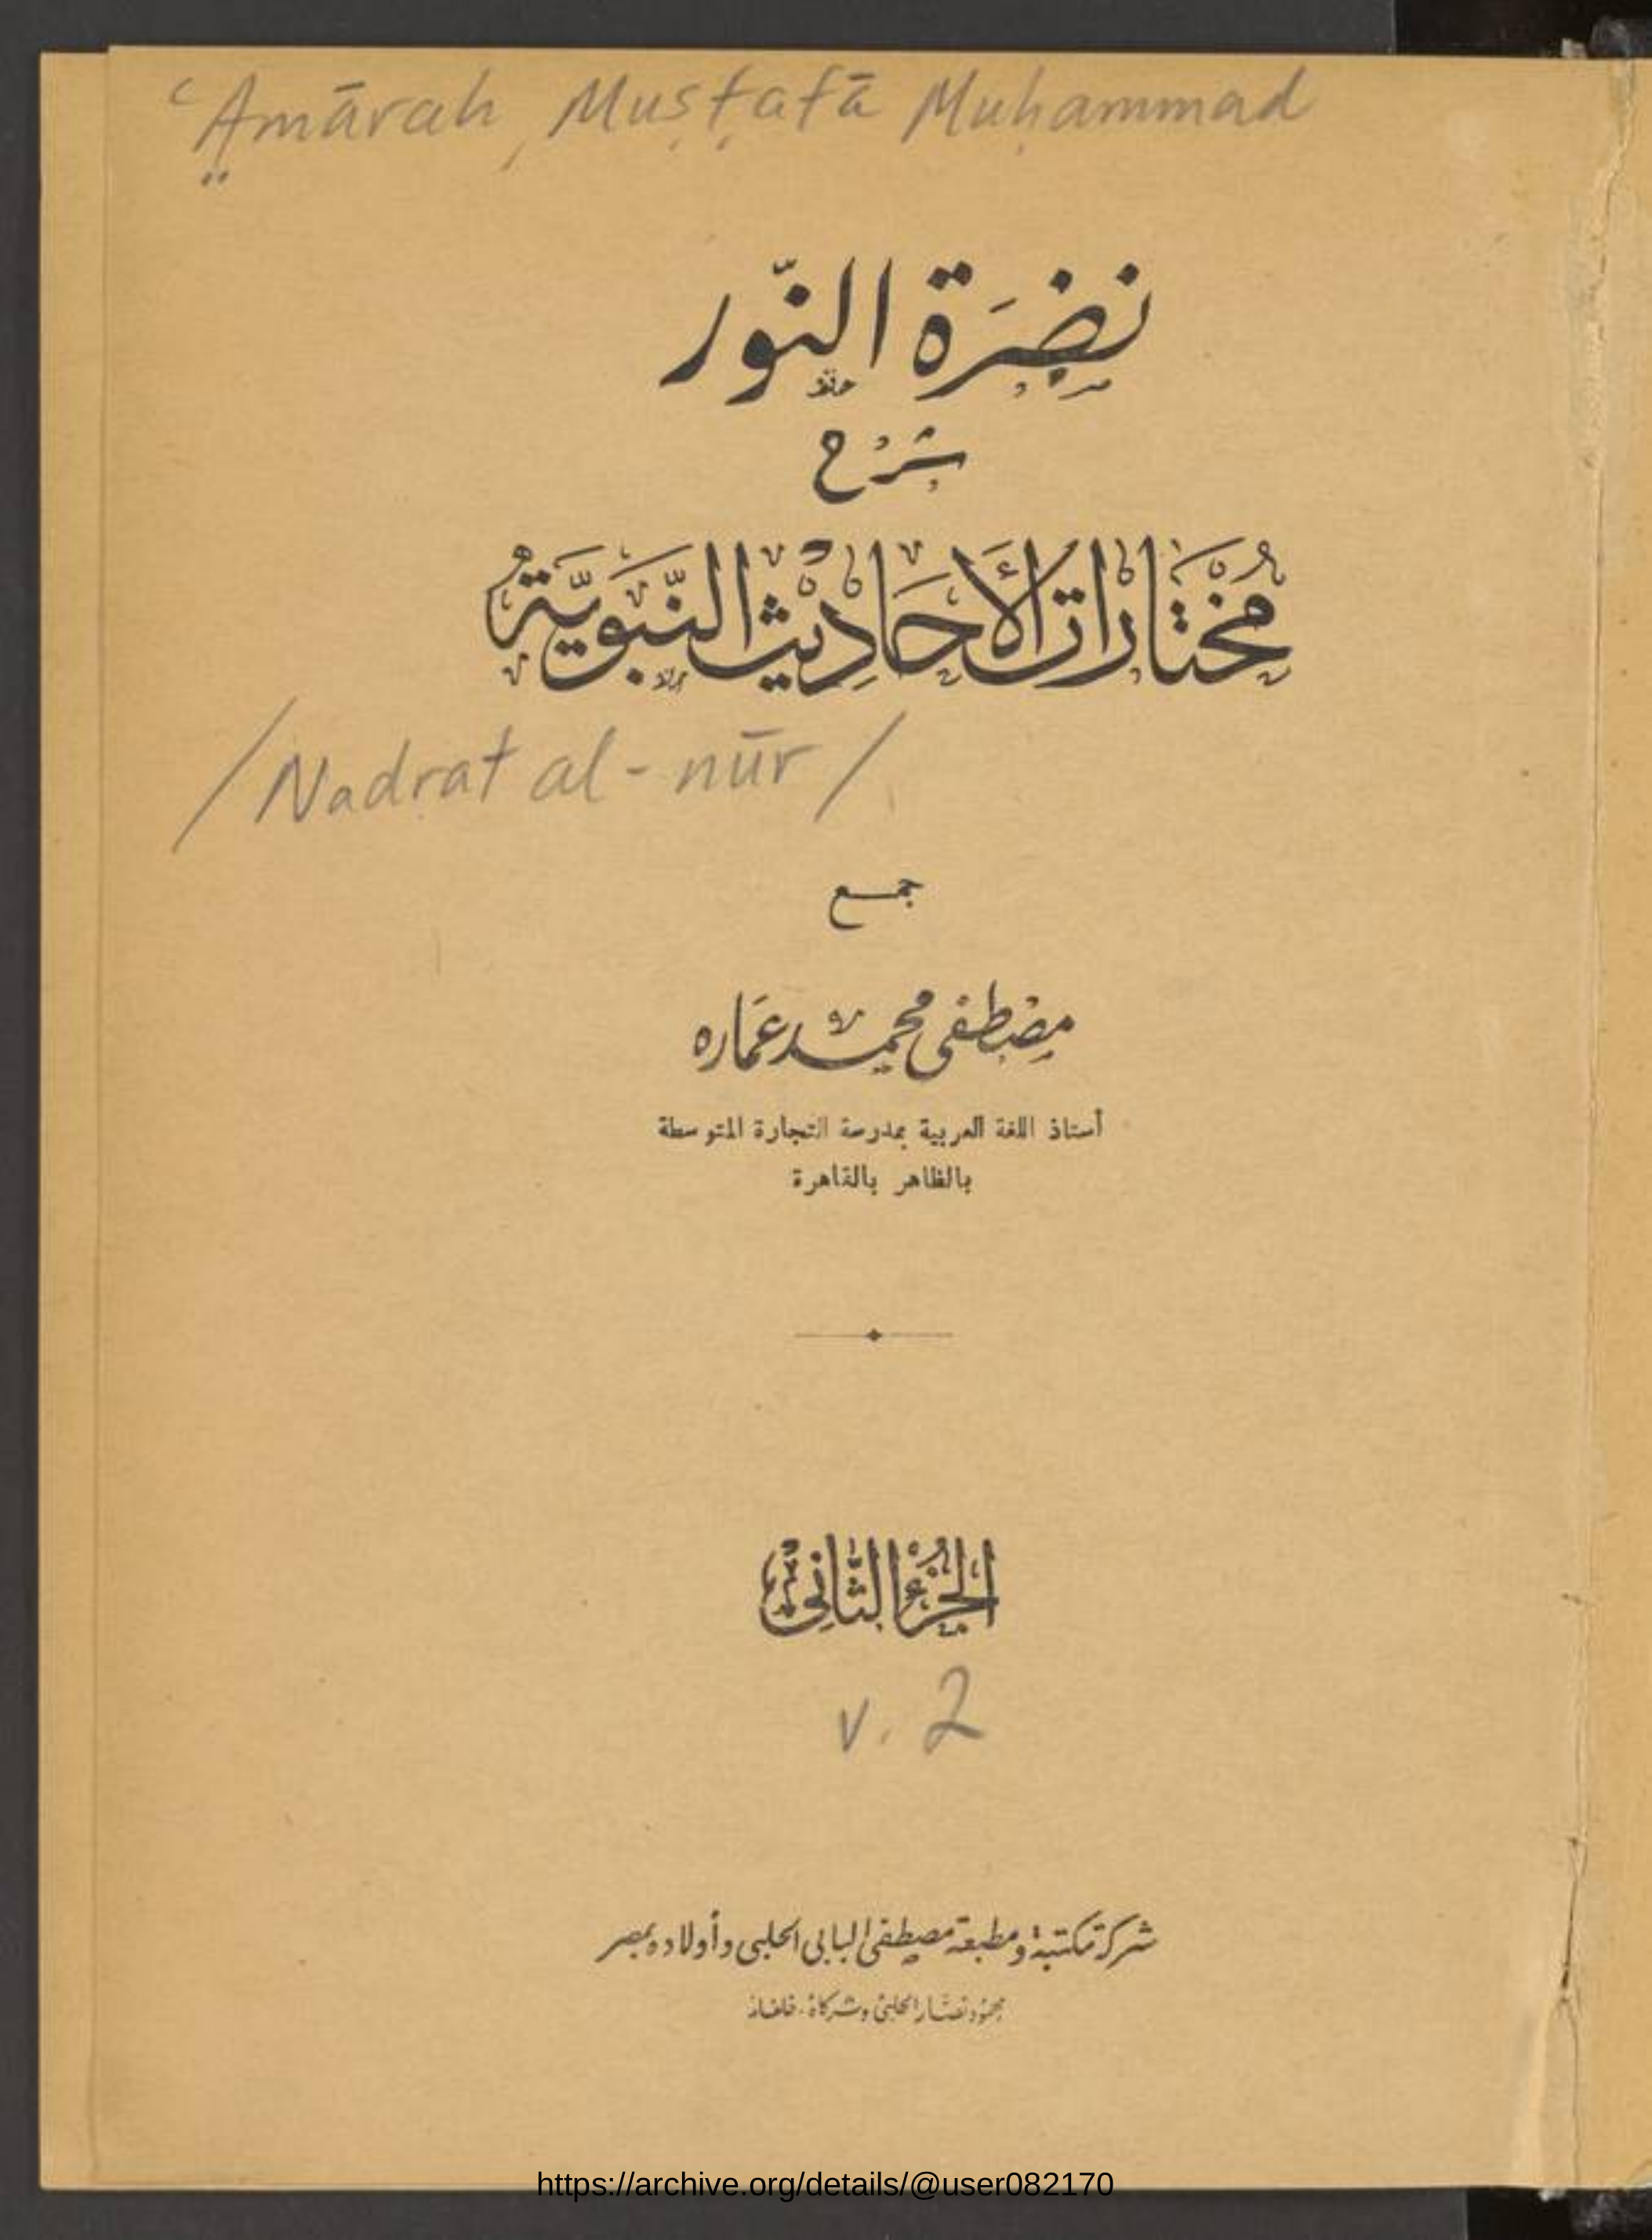 ʿAmārah, Muṣṭafā Muḥammad
نضرة النّور
شرح
مُختارات الأحاديث النّبويّة
/Nadrat al-nūr/
جمع
مصطفى محمد عماره
أستاذ اللغة العربية بمدرسة التجارة المتوسطة
بالظاهر بالقاهرة
الجزء الثّاني
v. 2
شركة مكتبة ومطبعة مصطفى البابى الحلبى وأولاده بمصر
محمود نصّار الحلبى وشركاه - خلفاء
https://archive.org/details/@user082170